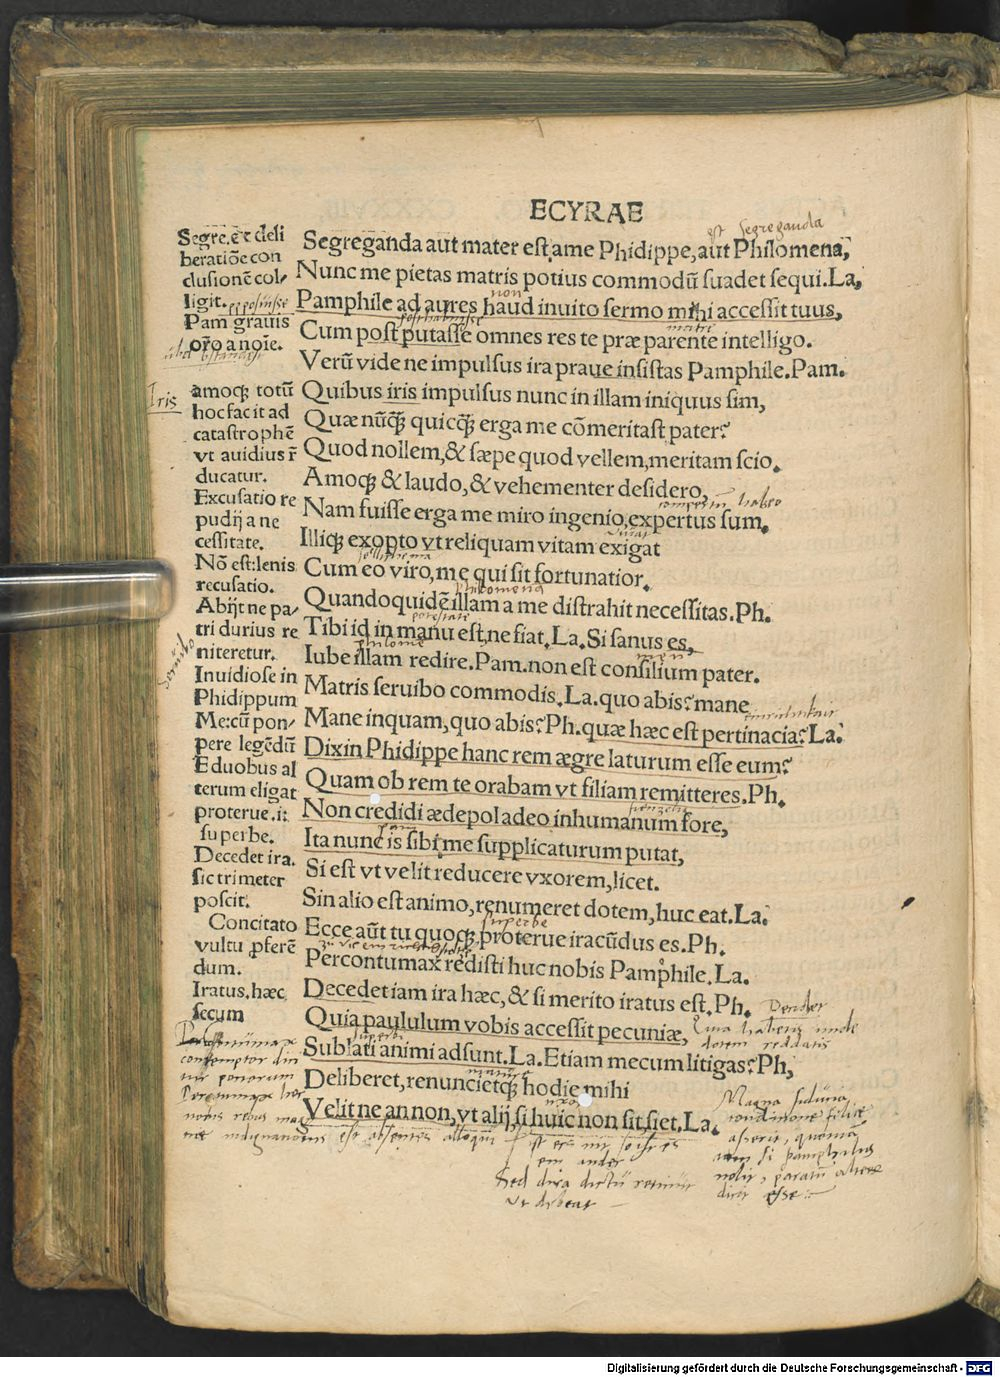 ECYRAE
est segreganda
Segre. & deli
beratiõe con
clusionẽ col/
ligit.
Pam grauis
orõ a noĩe.
Iris
amoqꝫ totũ
hoc facit ad
catastrophẽ
vt auidius r̃
ducatur.
Excusatio re
pudij a ne
cessitate.
Nõ est: lenis
recusatio.
Abijt ne pa/
tri durius re
niteretur.
Inuidiose in
Phidippum
Me: cũ pon/
pere legẽdũ
E duobus al
terum eligat
proterue. i:
superbe.
Decedet ira.
sic trimeter
poscit.
Concitato
vultu ꝓferẽ
dum.
Iratus. hæc
secum
Segreganda aut mater est, ame Phidippe, aut Philomena;
Nunc me pietas matris potius commodũ suadet sequi. La,
non
Pamphile ad aures haud inuito sermo mihi accessit tuus,
posthabuisse matri
Cum post putasse omnes res te præ parente intelligo.
Verũ vide ne impulsus ira praue insistas Pamphile. Pam.
Quibus iris impulsus nunc in illam iniquus sim,
Quæ nũqꝫ quicqꝫ erga me cõmeritast pater?
Quod nollem, & sæpe quod vellem, meritam scio.
Amoqꝫ & laudo, & vehementer desidero,
habeo
Nam fuisse erga me miro ingenio, expertus sum.
viuat
Illiqꝫ exopto vt reliquam vitam exigat
Cum eo viro, me qui sit fortunatior.
philomena
Quandoquidẽ illam a me distrahit necessitas. Ph.
potestate
Tibi id in manu est, ne fiat. La. Si sanus es,
Iube illam redire. Pam. non est consilium pater.
seruibo
Matris seruibo commodis. La. quo abis? mane
Mane inquam, quo abis? Ph. quæ hæc est pertinacia? La.
Dixin Phidippe hanc rem ægre laturum esse eum?
Quam ob rem te orabam vt filiam remitteres. Ph.
Non credidi ædepol adeo inhumanum fore,
Ita nunc is sibi me supplicaturum putat,
Si est vt velit reducere vxorem, licet.
Sin alio est animo, renumeret dotem, huc eat. La.
superbe
Ecce aũt tu quoqꝫ proterue iracũdus es. Ph.
Percontumax redisti huc nobis Pamphile. La.
Decedet iam ira hæc, & si merito iratus est. Ph.
Quia paululum vobis accessit pecuniæ,
Quia habetis unde
dotem reddatis
superbi
Sublati animi adsunt. La. Etiam mecum litigas? Ph,
Deliberet, renuncietqꝫ hodie mihi
Velit ne an non, vt alij, si huic non sit, siet. La.
Digitalisierung gefördert durch die Deutsche Forschungsgemeinschaft - DFG